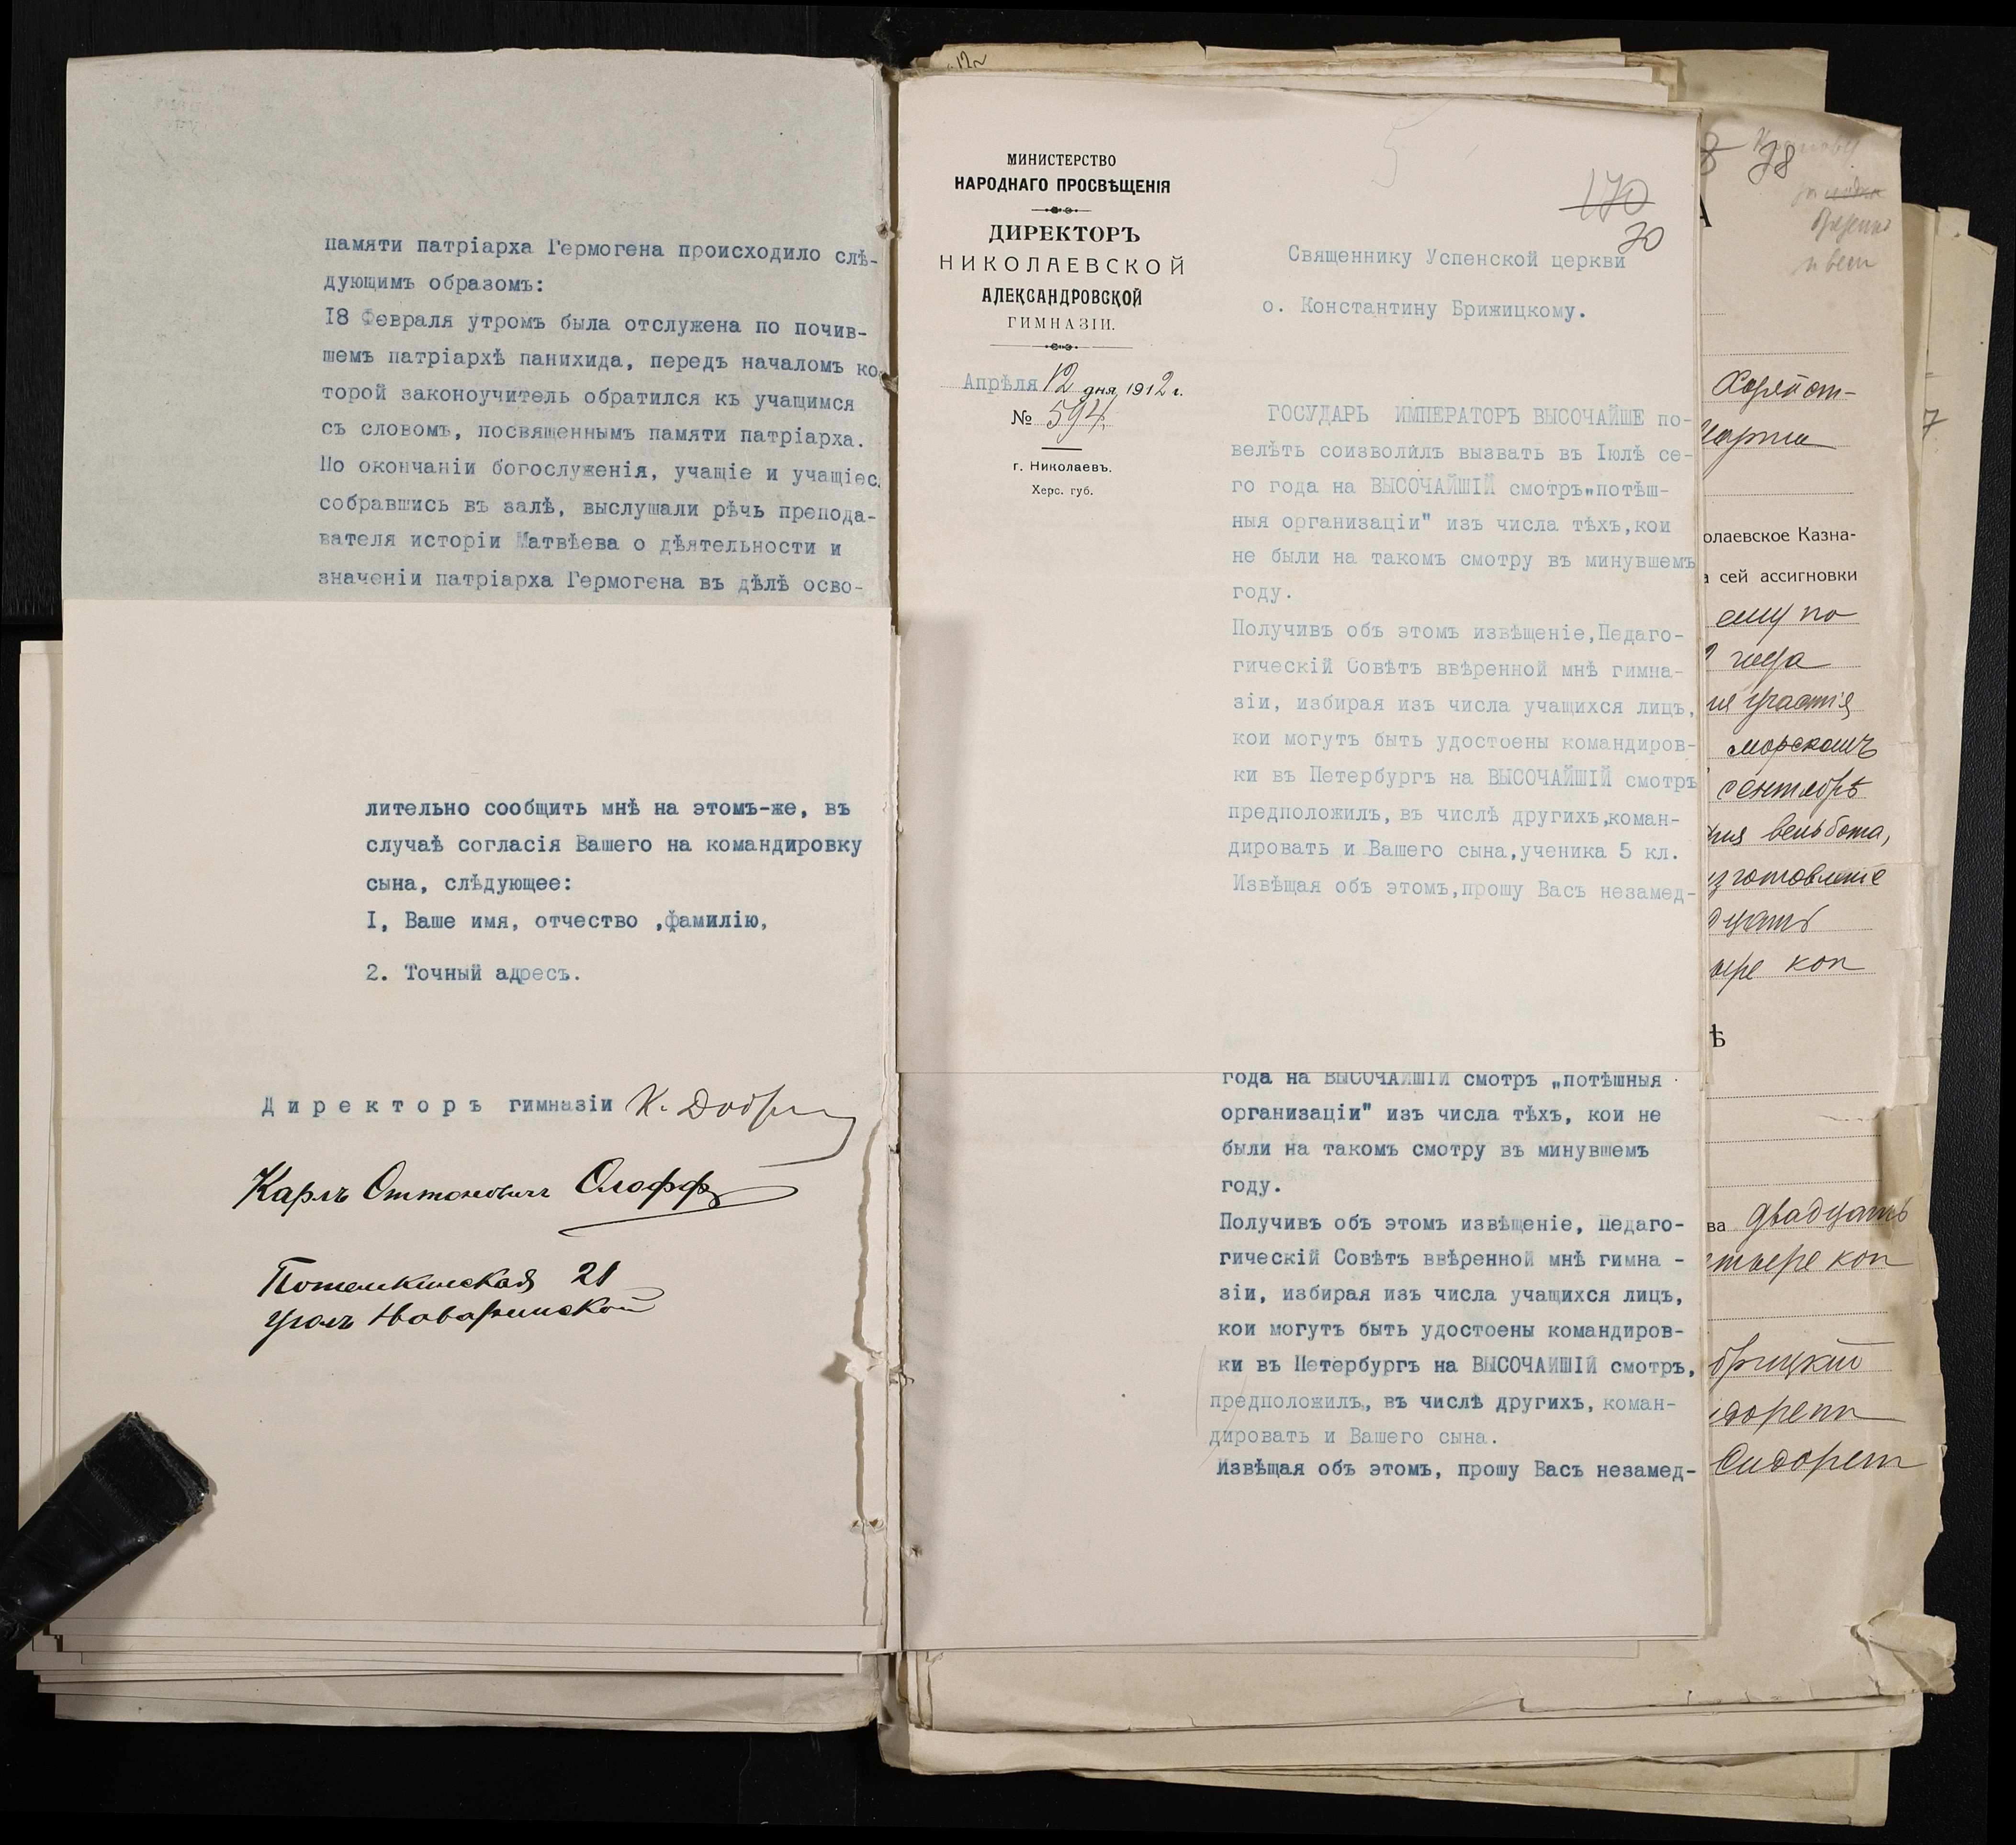 памяти патріарха Гермогена происходило слѣ-
дующимъ образомъ:
18 Февраля утромъ была отслужена по почив-
шемъ патріархѣ панихида, передъ началомъ ко
торой законоучитель обратился къ учащимся
съ словомъ, посвященнымъ памяти патріарха.
По окончаніи богослуженія, учащіе и учащіес
собравшись въ залѣ, выслушали рѣчь препода-
вателя исторіи Матвѣева о дѣятельности и
значеніи патріарха Гермогена въ дѣлѣ осво-
лительно сообщить мнѣ на этомъ-же, въ
случаѣ согласія Вашего на командировку
сына, слѣдующее:
I, Ваше имя, отчество ,фамилію,
2. Точный адресъ.
Директоръ гимназіи
Карлъ Оттоновичъ Олофф
Потемкинская 21
уголъ Наваринской
МИНИСТЕРСТВО
НАРОДНАГО ПРОСВѢЩЕНІЯ
ДИРЕКТОРЪ
НИКОЛАЕВСКОЙ
АЛЕКСАНДРОВСКОЙ
ГИМНАЗІИ.
Апрѣля 12 дня 1912 г.
№ 594.
г. Николаевъ.
Херс. губ.
170
70
Священнику Успенской церкви
о. Константину Брижицкому.
ГОСУДАРЬ ИМПЕРАТОРЪ ВЫСОЧАЙШЕ по-
велѣть соизволилъ вызвать въ Іюлѣ се-
го года на ВЫСОЧАЙШІЙ смотръ„потѣш-
ныя организаціи" изъ числа тѣхъ,кои
не были на такомъ смотру въ минувшемъ
году.
Получивъ объ этомъ извѣщеніе,Педаго-
гическій Совѣтъ ввѣренной мнѣ гимна-
зіи, избирая изъ числа учащихся лицъ,
кои могутъ быть удостоены командиров-
ки въ Петербургъ на ВЫСОЧАЙШІЙ смотръ
предположилъ, въ числѣ другихъ,коман-
дировать и Вашего сына,ученика 5 кл.
Извѣщая объ этомъ,прошу Васъ незамед-
года на ВЫСОЧАЙШІЙ смотръ „потѣшныя
организаціи" изъ числа тѣхъ, кои не
были на такомъ смотру въ минувшемъ
году.
Получивъ объ этомъ извѣщеніе, Педаго-
гическій Совѣтъ ввѣренной мнѣ гимна -
зіи, избирая изъ числа учащихся лицъ,
кои могутъ быть удостоены командиров-
ки въ Петербургъ на ВЫСОЧАЙШІЙ смотръ,
предположилъ, въ числѣ другихъ, коман-
дировать и Вашего сына.
Извѣщая объ этомъ, прошу Васъ незамед-
78
марта
олаевское Казна-
а сей ассигновки
ему по
года
участія
морскомъ
сентябрѣ
вельбота,
изготовленіе
коп
ѣ
ва двадцать
коп